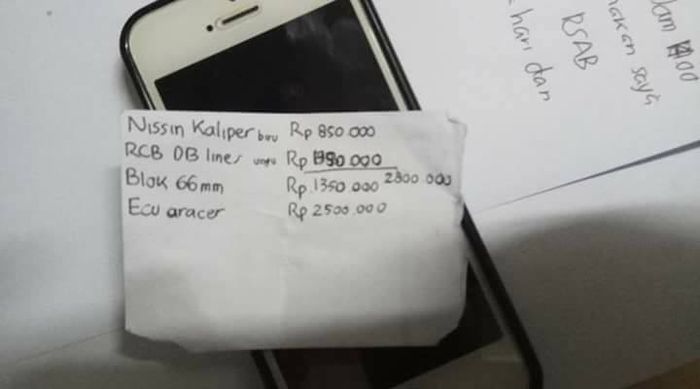 Nissin Kaliper baru Rp 850.000
RCB DB lines ungu Rp
Blok 66mm Rp.1350.000 2800 000
Ecu aracer Rp 2500.000
Jam
makan saya
RSAB
hari dan